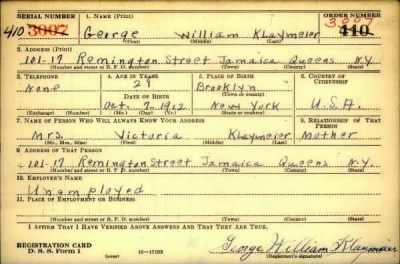 SERIAL NUMBER 1. NAME (Print) ORDER NUMBER
410 3007 George William Klaymeier 3007 410
(First) (Middle) (Last)
2. ADDRESS (Print)
101-17 Remington Street Jamaica Queens N.Y.
(Number and street or R. F. D. number) (Town) (County) (State)
3. TELEPHONE 4. AGE IN YEARS 5. PLACE OF BIRTH 6. COUNTRY OF CITIZENSHIP
None Brooklyn
DATE OF BIRTH
Oct. 7 1912 New York U.S.A.
(Exchange) (Number) (Mo.) (Day) (Yr.) (State or country)
7. NAME OF PERSON WHO WILL ALWAYS KNOW YOUR ADDRESS 8. RELATIONSHIP OF THAT PERSON
Mrs. Victoria Klaymeier Mother
(Mr., Mrs., Miss) (First) (Middle) (Last)
9. ADDRESS OF THAT PERSON
101-17 Remington Street Jamaica Queens N.Y.
(Number and street or R. F. D. number) (Town) (County) (State)
10. EMPLOYER'S NAME
Unemployed
11. PLACE OF EMPLOYMENT OR BUSINESS
(Number and street or R. F. D. number) (Town) (County) (State)
I AFFIRM THAT I HAVE VERIFIED ABOVE ANSWERS AND THAT THEY ARE TRUE.
REGISTRATION CARD
D. S. S. Form 1 (over) George William Klaymeier
(Registrant's signature)